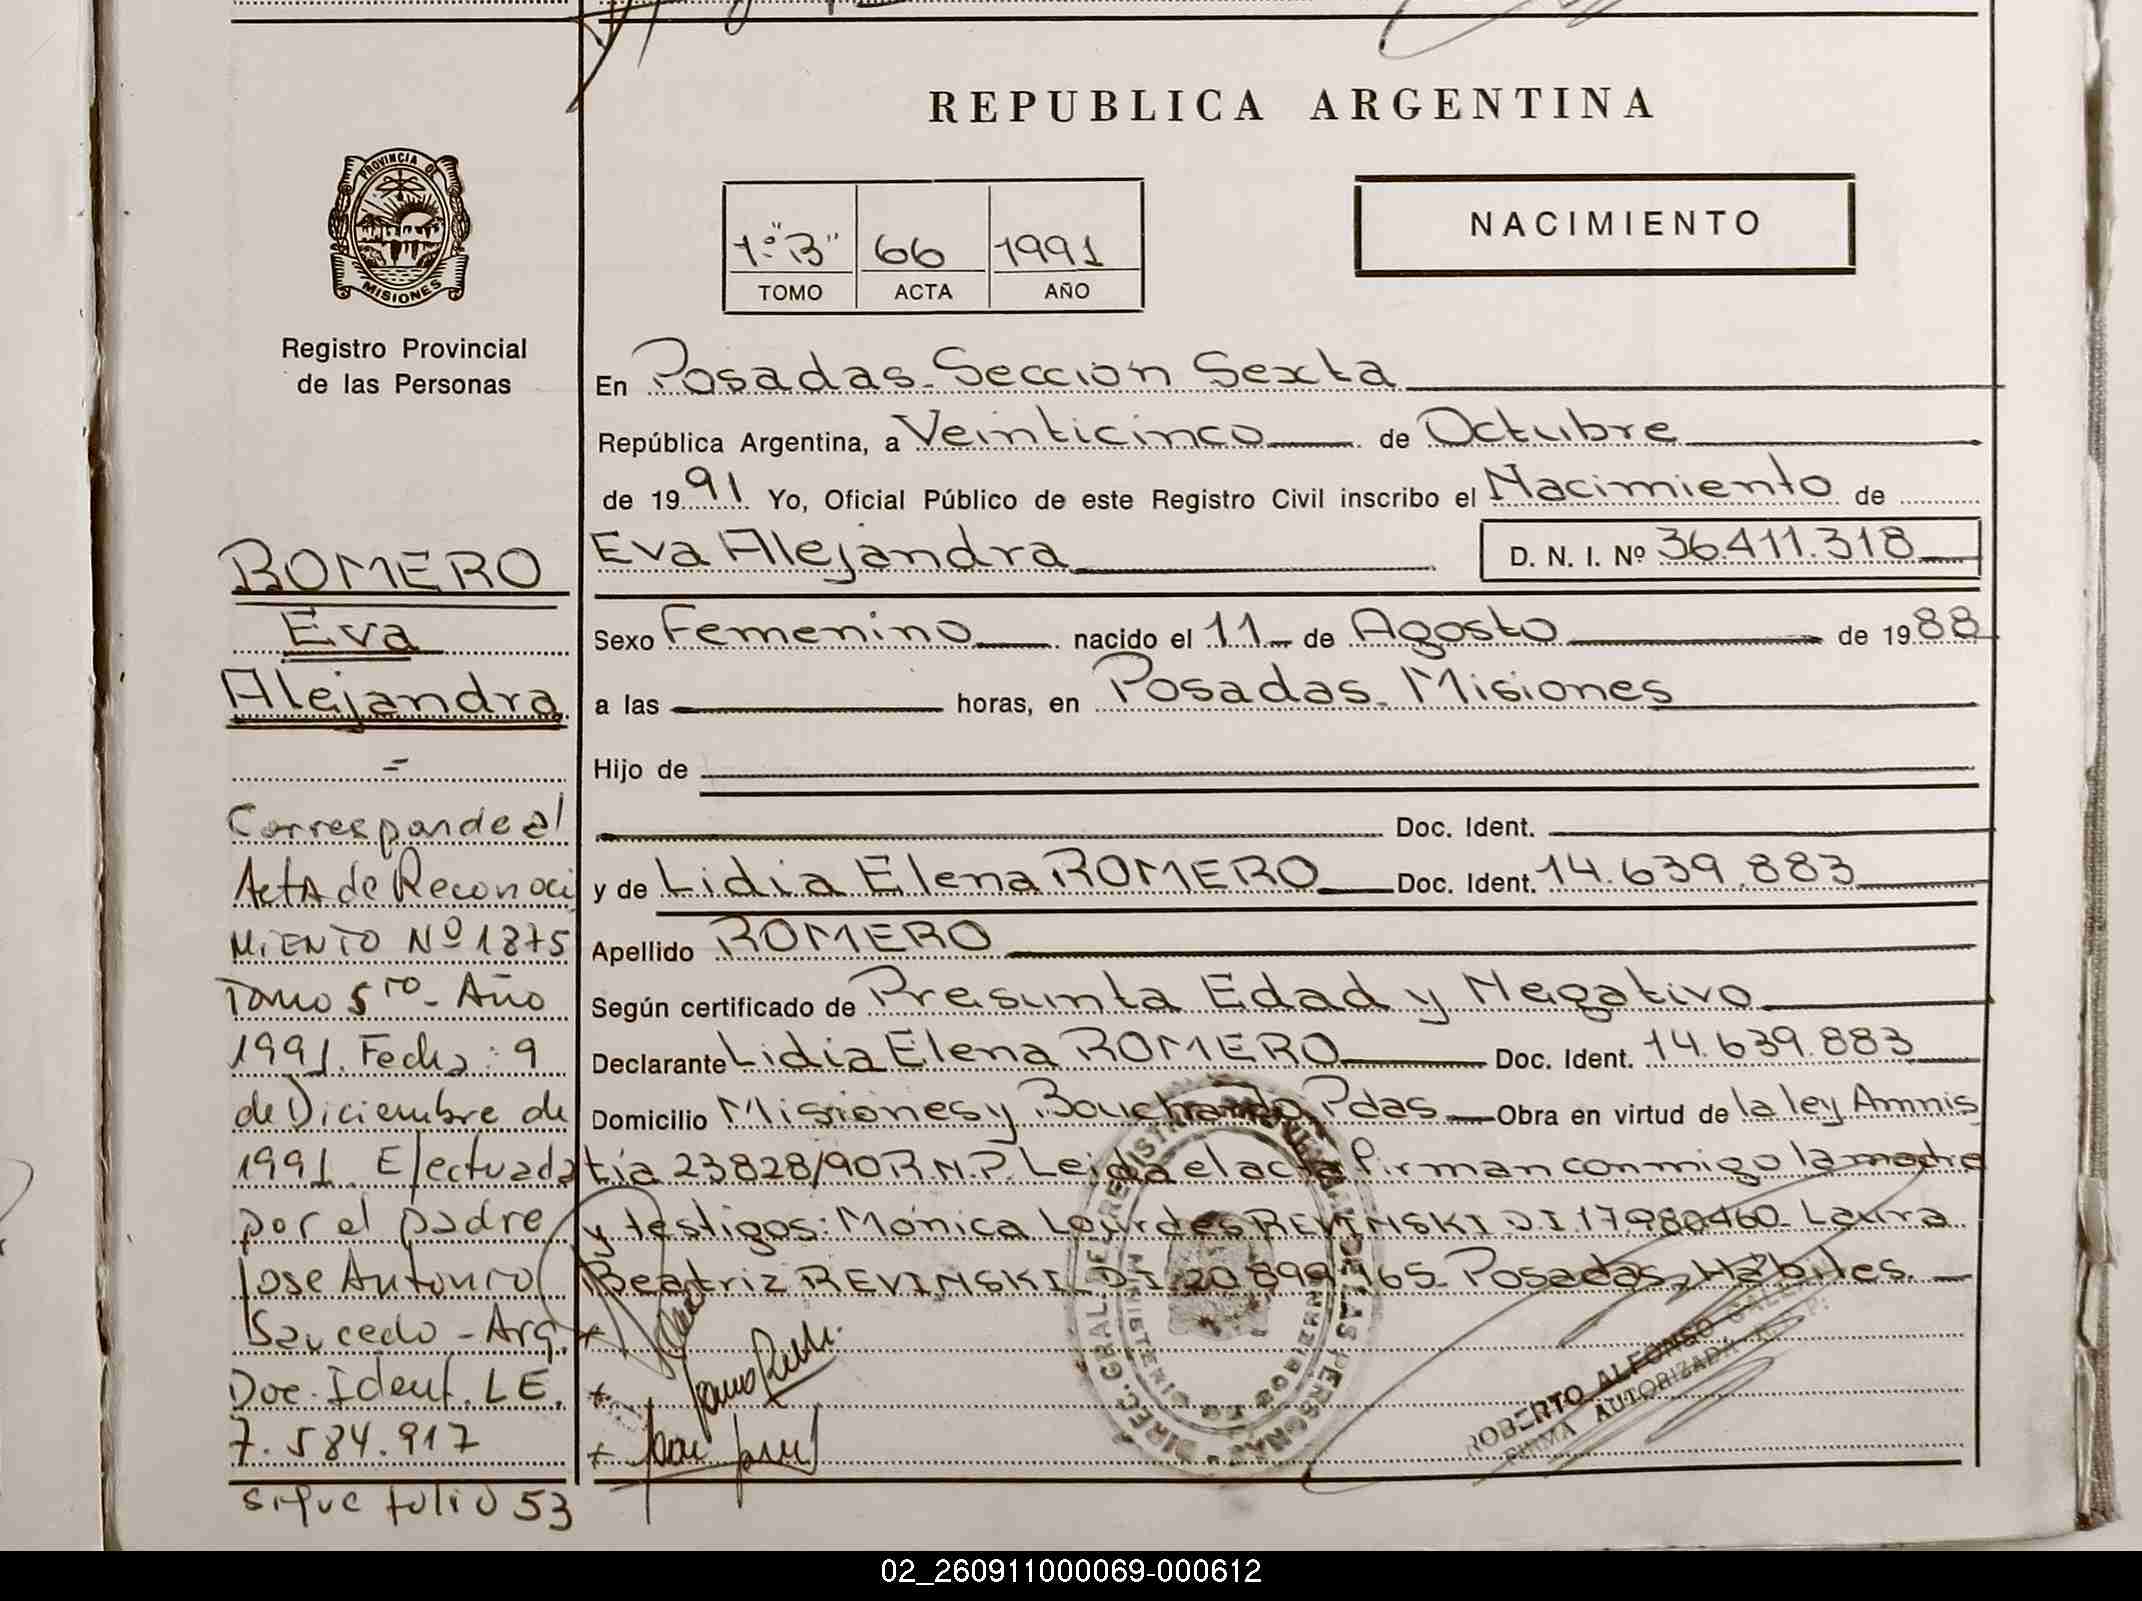 REPUBLICA ARGENTINA
PROVINCIA DE
MISIONES
Registro Provincial
de las Personas
1º "B" 66 1991
TOMO ACTA AÑO
NACIMIENTO
En Posadas - Seccion Sexta
República Argentina, a Veinticinco de Octubre
de 1991 Yo, Oficial Público de este Registro Civil inscribo el Nacimiento de
Eva Alejandra D. N. I. Nº 36.411.318
Sexo Femenino nacido el 11 de Agosto de 1988
a las horas, en Posadas - Misiones
Hijo de
Doc. Ident.
y de Lidia Elena ROMERO Doc. Ident. 14.639.883
Apellido ROMERO
Según certificado de Presunta Edad y Negativo
Declarante Lidia Elena ROMERO Doc. Ident. 14.639.883
Domicilio Misiones y Bouchardo Pdas Obra en virtud de la ley Amnis
tía 23828/90 R.N.P. Leida el acta firman conmigo la madre
y testigos: Mónica Lourdes REVINSKI DI 17980460 - Laura
Beatriz REVINSKI DI 20.899.165 - Posadas, Hábiles
ROBERTO ALFONSO
FIRMA AUTORIZADA
ROMERO
Eva
Alejandra
Corresponde al
Acta de Reconoci
MIENTO Nº 1875
Tomo 5to - Año
1991. Fecha: 9
de Diciembre de
1991. Efectuada
por el padre
Jose Antonio
Saucedo - Arg.
Doc. Ident. LE.
7.584.917
sigue folio 53
02_260911000069-000612